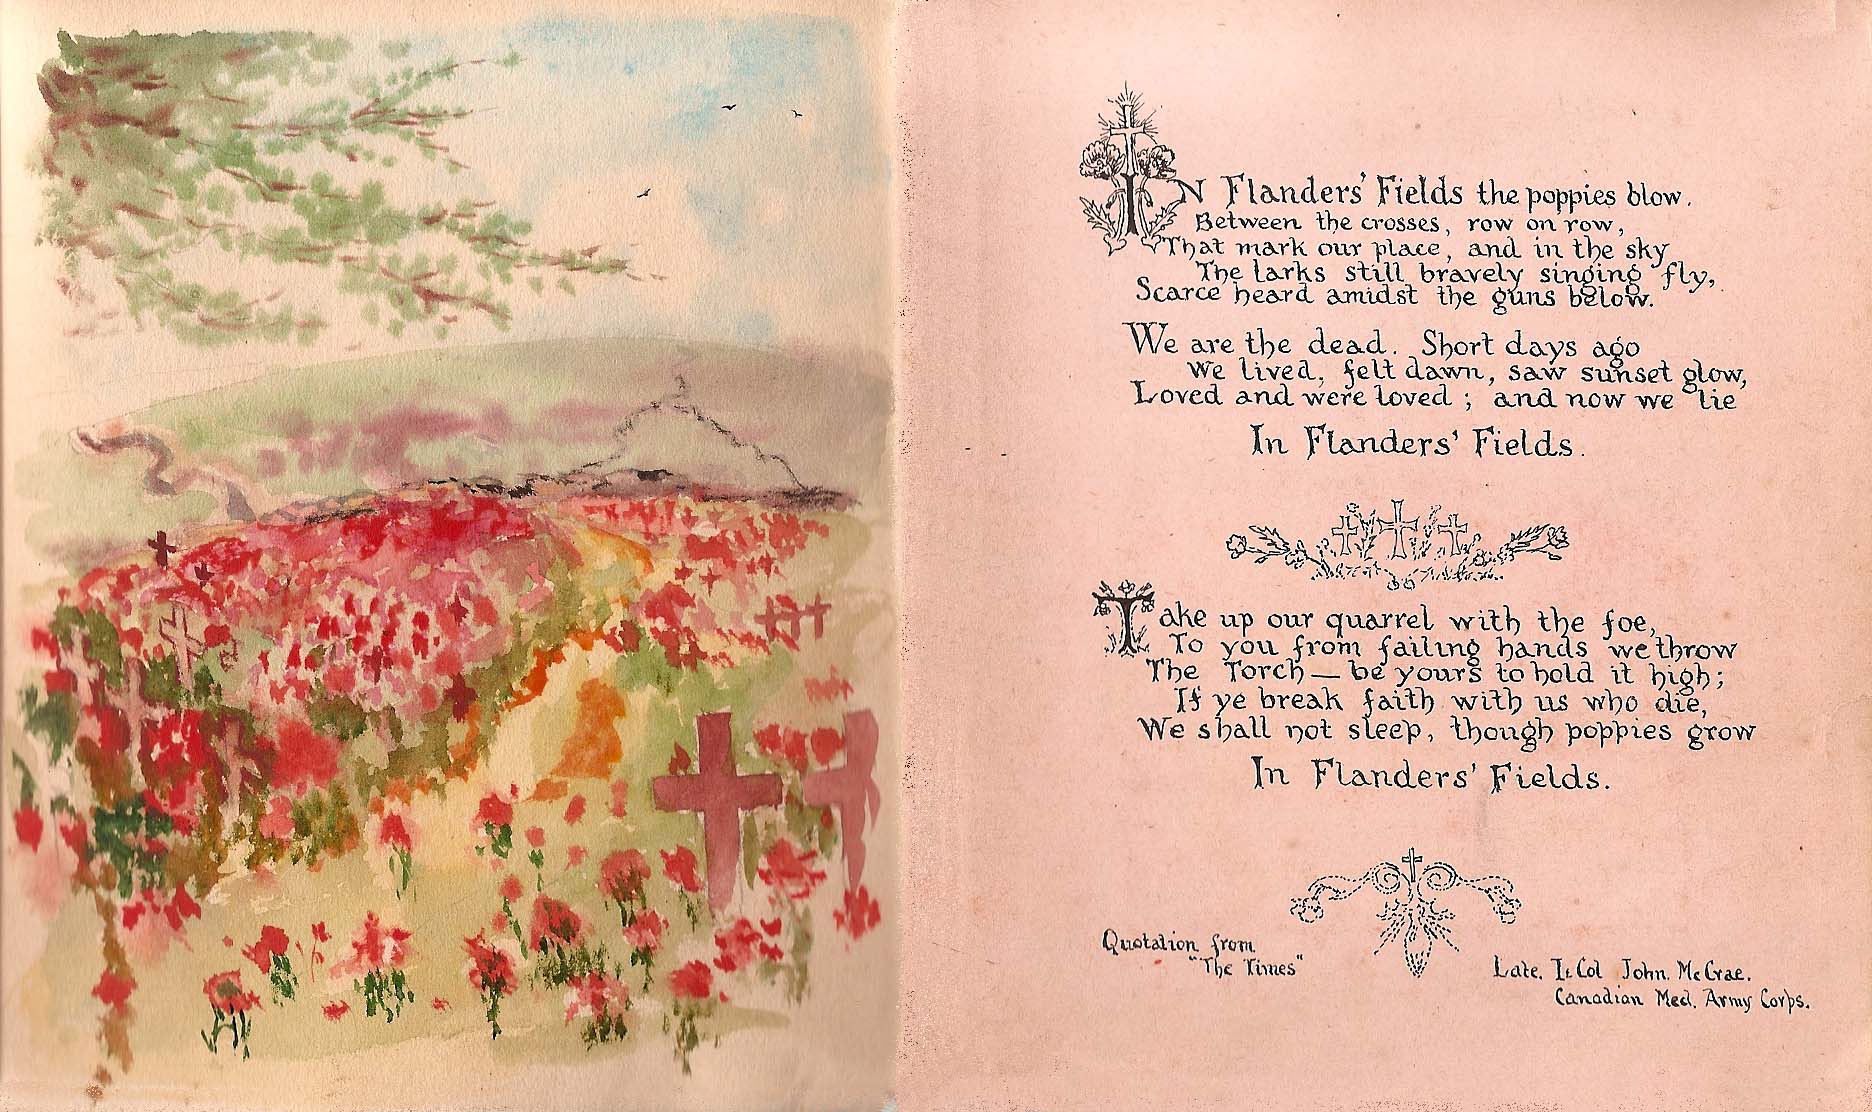 IN Flanders' Fields the poppies blow.
Between the crosses, row on row,
That mark our place, and in the sky
The larks still bravely singing fly,
Scarce heard amidst the guns below.
We are the dead. Short days ago
We lived, felt dawn, saw sunset glow,
Loved and were loved; and now we lie
In Flanders' Fields.
Take up our quarrel with the foe,
To you from failing hands we throw
The Torch — be yours to hold it high;
If ye break faith with us who die,
We shall not sleep, though poppies grow
In Flanders' Fields.
Quotation from
"The Times"
Late. Lt. Col John. McCrae.
Canadian Med. Army Corps.